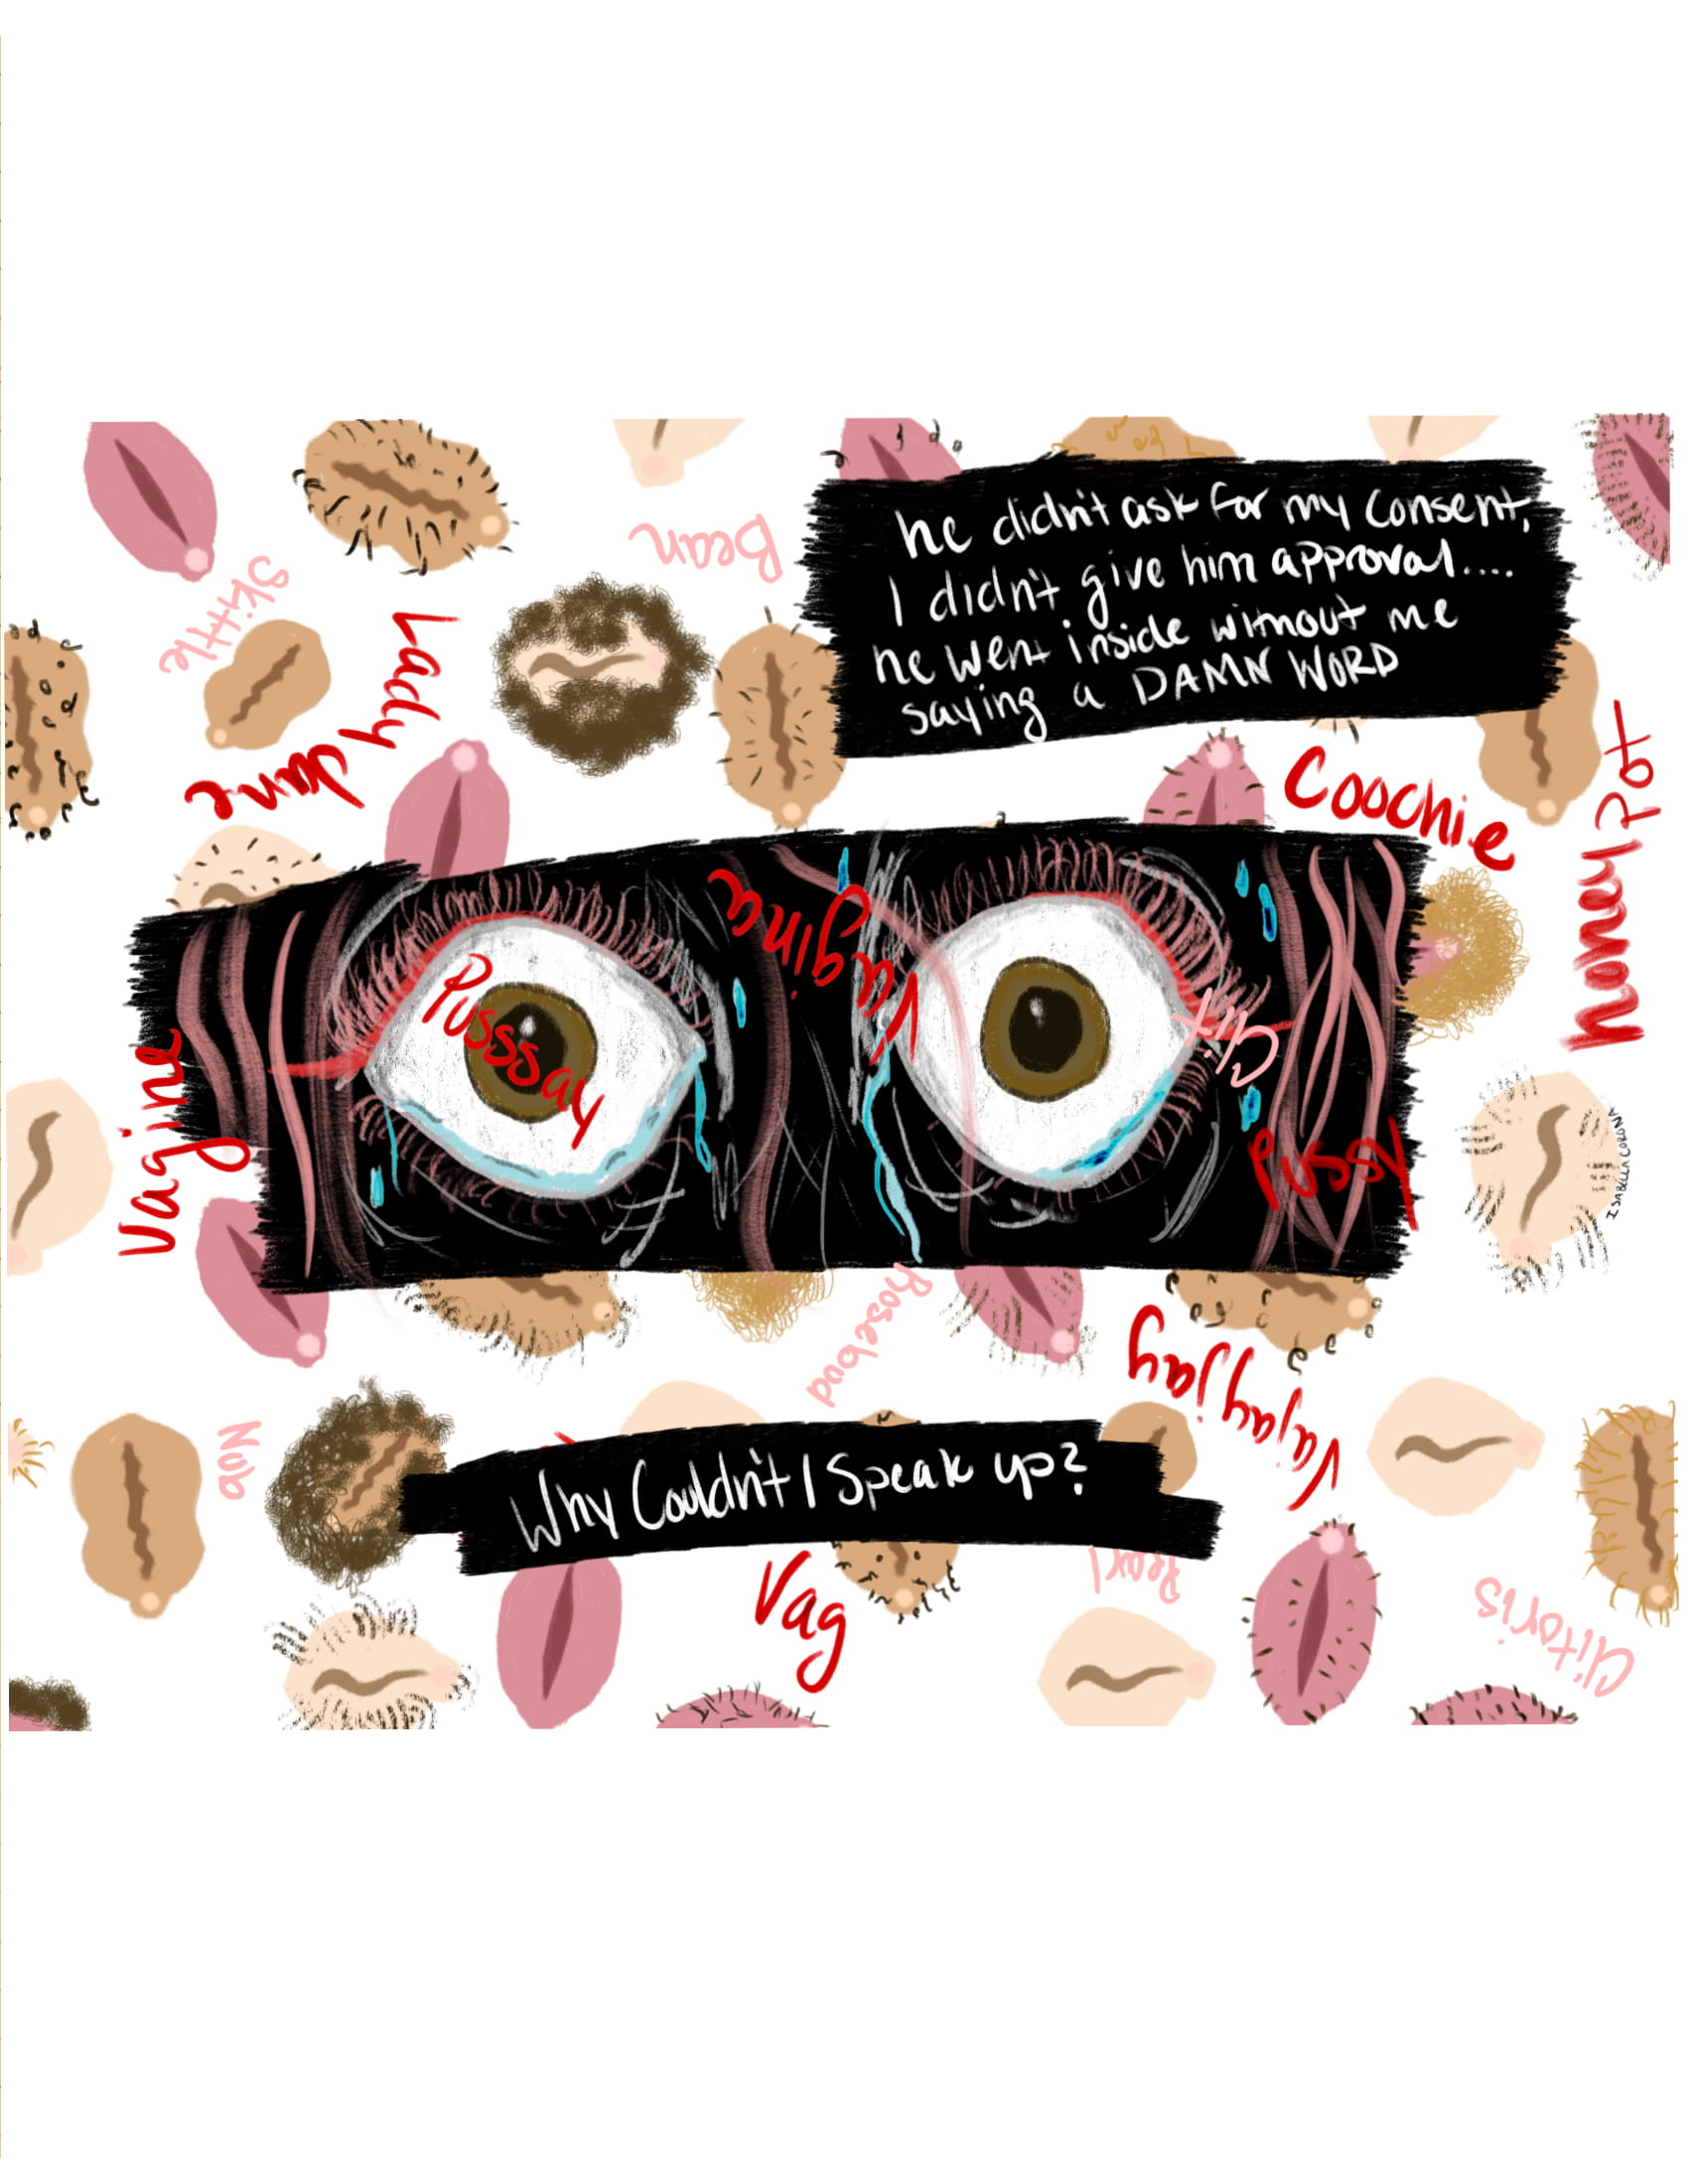 Bean
he didn't ask for my consent,
I didn't give him approval....
he went inside without me
saying a DAMN WORD
Skittle
Lady
dane
Coochie
honey Pot
Vagina
Pusssay
Clit
Vagine
Pussy
ISABELLA CORONA
Rosebud
Vajayjay
Nub
Why Couldn't I Speak up?
Pearl
Vag
Clitoris